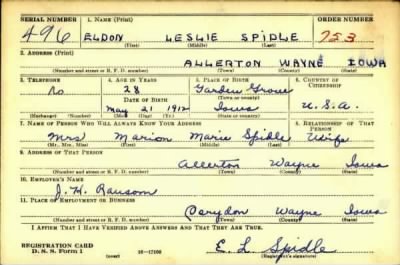 SERIAL NUMBER 1. NAME (Print) ORDER NUMBER
496 ELDON LESLIE SPIDLE 753
(First) (Middle) (Last)
2. ADDRESS (Print)
ALLERTON WAYNE IOWA
(Number and street or R. F. D. number) (Town) (County) (State)
3. TELEPHONE 4. AGE IN YEARS 5. PLACE OF BIRTH 6. COUNTRY OF CITIZENSHIP
No 28 Garden Grove
DATE OF BIRTH (Town or county)
May 21 1912 Iowa U.S.A.
(Exchange) (Number) (Mo.) (Day) (Yr.) (State or country)
7. NAME OF PERSON WHO WILL ALWAYS KNOW YOUR ADDRESS 8. RELATIONSHIP OF THAT PERSON
Mrs Marion Marie Spidle Wife
(Mr., Mrs., Miss) (First) (Middle) (Last)
9. ADDRESS OF THAT PERSON
Allerton Wayne Iowa
(Number and street or R. F. D. number) (Town) (County) (State)
10. EMPLOYER'S NAME
J. H. Ransom
11. PLACE OF EMPLOYMENT OR BUSINESS
Corydon Wayne Iowa
(Number and street or R. F. D. number) (Town) (County) (State)
I AFFIRM THAT I HAVE VERIFIED ABOVE ANSWERS AND THAT THEY ARE TRUE.
REGISTRATION CARD E. L. Spidle
D. S. S. Form 1 (over) (Registrant's signature)